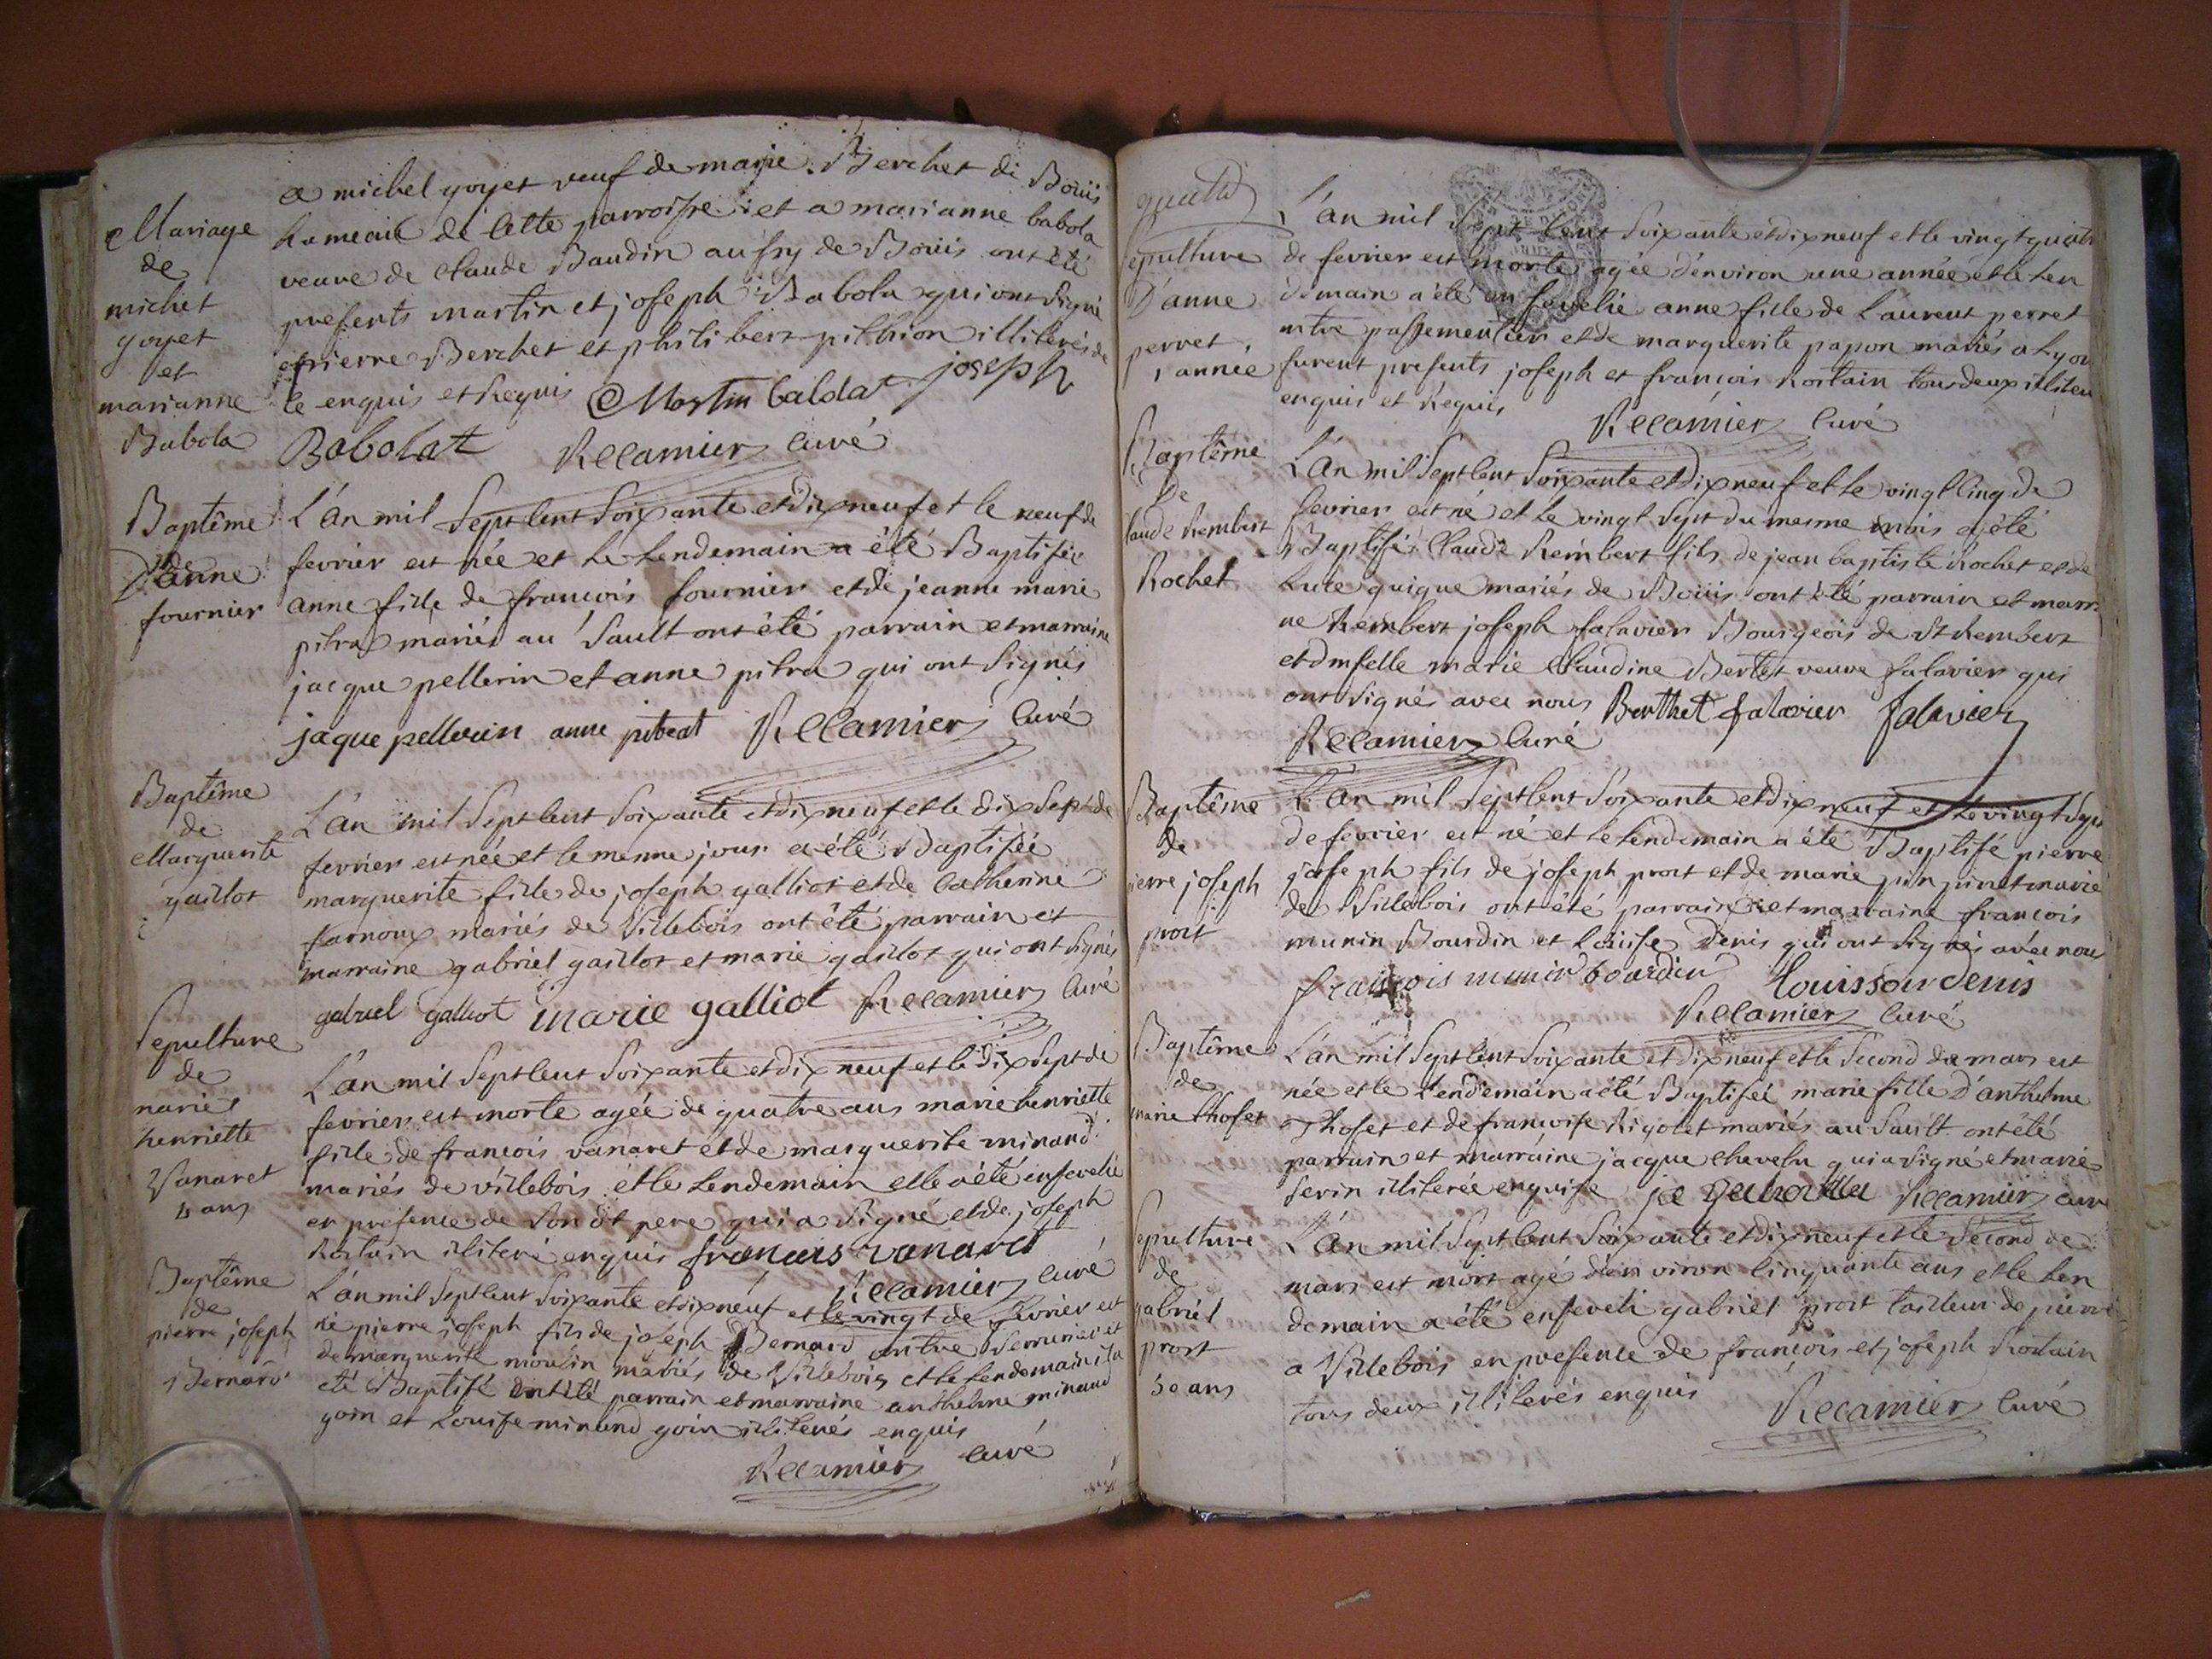 Mariage
de
michel
goyet
et
marianne
Babola
a michel goyet veuf de marie Berchet de Boüis
hameaux de cette parroisse et a marianne babola
veuve de claude Baudin aussy de Boüis ont été
presents martin et joseph Babola qui ont signé
et pierre Berchet et philibert pithion illiterés de
ce enquis et requis Martin balda joseph
Babolat Recamier curé
Baptême
D'anne
fournier
L'an mil sept cent soixante et dix neuf et le neuf de
fevrier est née et le lendemain a été Baptisée
anne fille de françois fournier et de jeanne marie
pitra mariés au Sault ont été parrain et marraine
jacque pellerin et anne pitra qui ont signés
jaque pellerin anne pitrat Recamier curé
Baptême
de
Marguerite
gaillot
L'an mil sept cent soixante et dix neuf et le dix sept de
fevrier est née et le mesme jour a été Baptisée
marguerite fille de joseph galliot et de catherine
farnoux mariés de Villebois ont été parrain et
marraine gabriel gaillot et marie gaillot qui ont signés
gabriel galliot marie galliot Recamier curé
Sepulture
de
marie
henriette
Vanaret
4 ans
L'an mil sept cent soixante et dix neuf et le dix sept de
fevrier est morte agée de quatre ans marie henriette
fille de francois vanaret et de marguerite minand
mariés de villebois et le lendemain elle a été ensevelie
en presence de son dt pere qui a signé et de joseph
Rostain illiteré enquis francois vanaret
Recamier curé
Baptême
de
pierre joseph
Bernard
L'an mil sept cent soixante et dix neuf et le vingt de fevrier est
né pierre joseph fils de joseph Bernard mtre serrurier et
de marguerite moulin mariés de Villebois et le lendemain il a
eté Baptisé ont été parrain et marraine anthelme minand
goin et Louise minand goin illiterés enquis
Recamier curé
Sepulture
D'anne
perret
1 année
L'an mil sept cent soixante et dix neuf et le vingt quatre
de fevrier est morte agée d'environ une année et le len
demain a été ensevelie anne fille de Laurent perret
mtre passementier et de marguerite papon mariés a Lyon
furent presents joseph et françois Rostain tous deux illiteré
enquis et requis Recamier curé
Baptême
de
laude Rembert
Rochet
L'an mil sept cent soixante et dix neuf et le vingt cinq de
fevrier est né et le vingt sept du mesme mois a été
Baptisé Claude Rembert fils de jean baptiste Rochet et de
Luce quique mariés de Boüis ont été parrain et marrai
ne Rembert joseph falavier Bourgeois de St Rembert
et dmselle marie Claudine Bertet veuve falavier qui
ont signés avec nous Berthet falavier falavier
Recamier curé
Baptême
de
ierre joseph
prost
L'an mil sept cent soixante et dix neuf et le vingt sept
de fevrier est né et le lendemain a été Baptisé pierre
joseph fils de joseph prost et de marie junjunet mariés
de Villebois ont été parrain et marraine françois
munin Bourdin et Louise denis qui ont signés avec nous
francois munin bourdin Louisson denis
Recamier curé
Baptême
de
marie thoset
L'an mil sept cent soixante et dix neuf et le second de mars est
née et le lendemain a été Baptisée marie fille D'anthelme
Thoset et de françoise Rigolet mariés au Sault ont été
parrain et marraine jacque chevelu qui a signé et marie
serin illiterée enquise Recamier curé
Sepulture
de
gabriel
prost
50 ans
L'an mil sept cent soixante et dix neuf et le second de
mars est mort agé d'environ cinquante ans et le len
demain a été enseveli gabriel prost tailleur de pierre
a Villebois en presence de françois et joseph Rostain
tous deux illiterés enquis Recamier curé